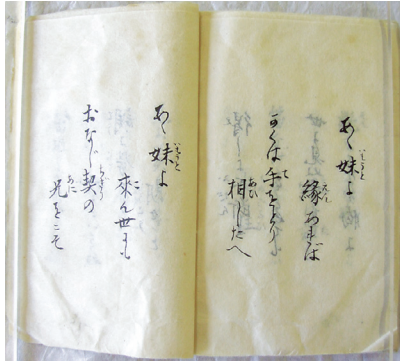 あゝ妹よ
世に見る縁あらば
かくは手をとり
相したへ
あゝ妹よ
來ん世にも
おなじ契の
兄をこそ